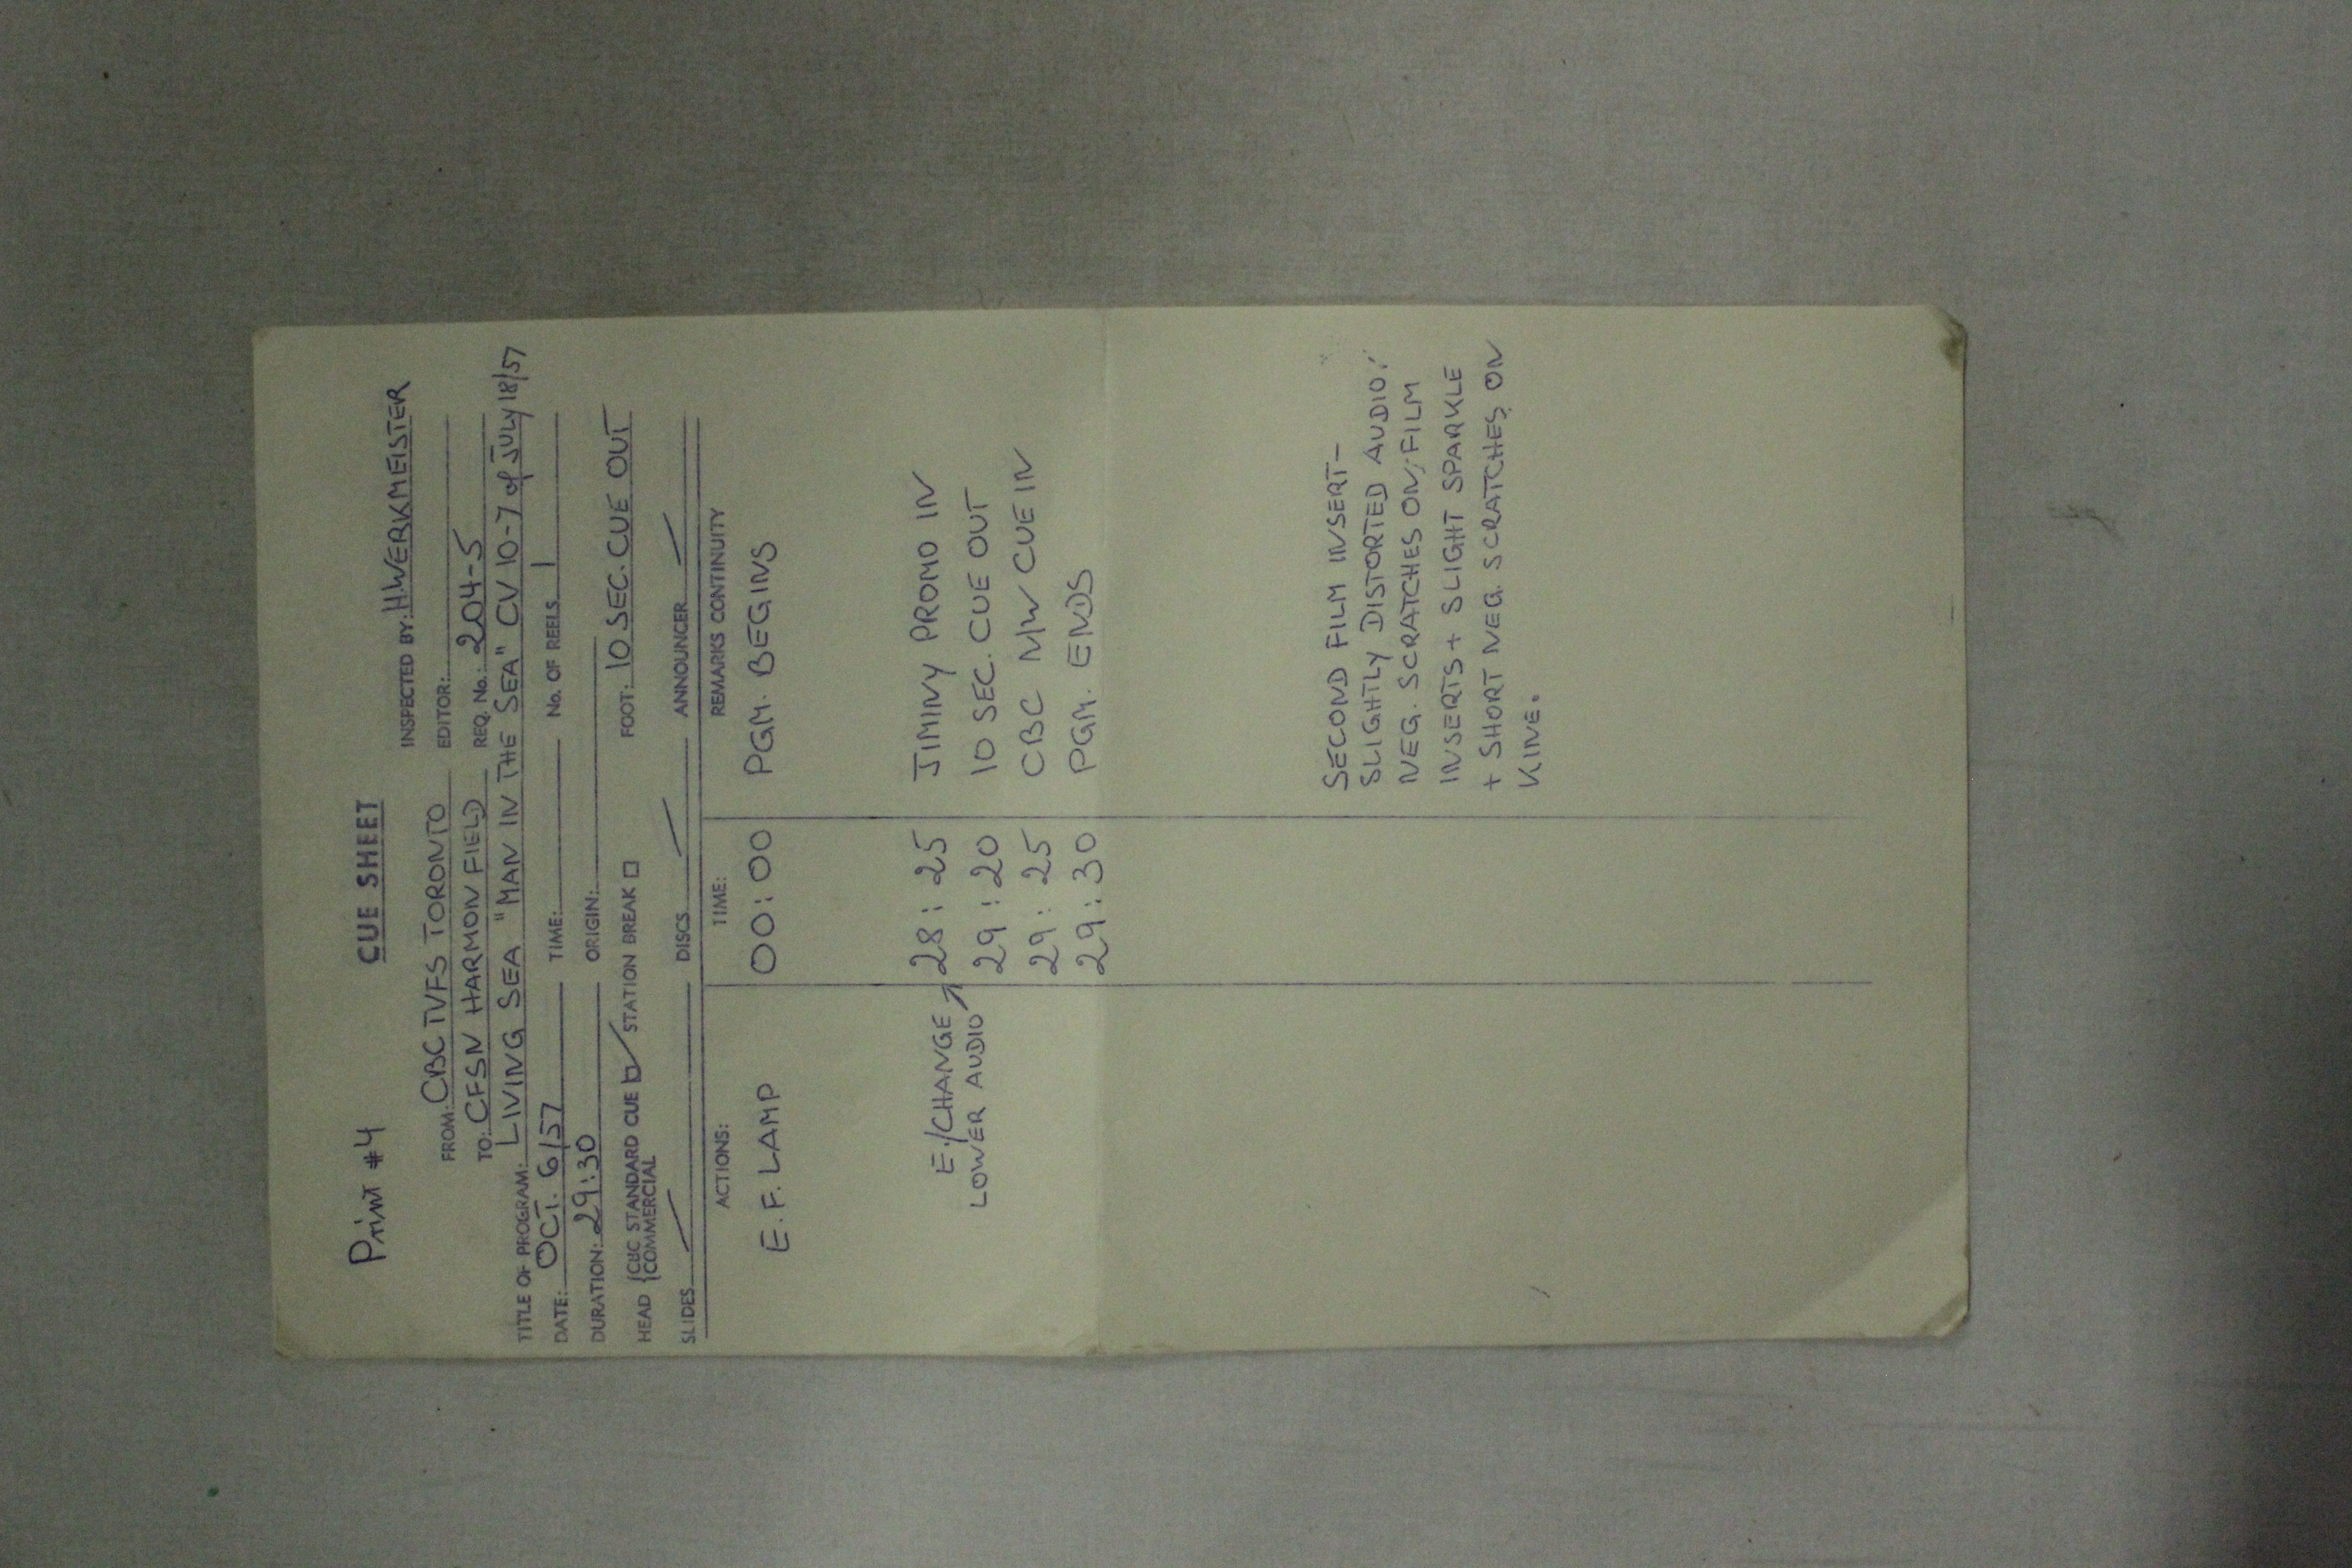 Print #4 CUE SHEET
INSPECTED BY: H.WERKMEISTER
FROM: CBC TVFS TORONTO EDITOR:
TO: CFSN HARMON FIELD REQ. No.: 204-5
TITLE OF PROGRAM: LIVING SEA "MAN IN THE SEA" CV 10-7 of JULY 18/57
DATE: OCT. 6/57 TIME: No. OF REELS 1
DURATION: 29:30 ORIGIN:
HEAD {CBC STANDARD CUE ☑ STATION BREAK ☐ FOOT: 10 SEC. CUE OUT
{COMMERCIAL
SLIDES / DISCS / ANNOUNCER /
ACTIONS: TIME: REMARKS CONTINUITY
E.F. LAMP 00:00 PGM. BEGINS
E./CHANGE 28:25 JIMINY PROMO IN
LOWER AUDIO ↗ 29:20 10 SEC. CUE OUT
29:25 CBC M/W CUE IN
29:30 PGM. ENDS
SECOND FILM INSERT-
SLIGHTLY DISTORTED AUDIO;
NEG. SCRATCHES ON FILM
INSERTS + SLIGHT SPARKLE
+ SHORT NEG. SCRATCHES ON
KINE.